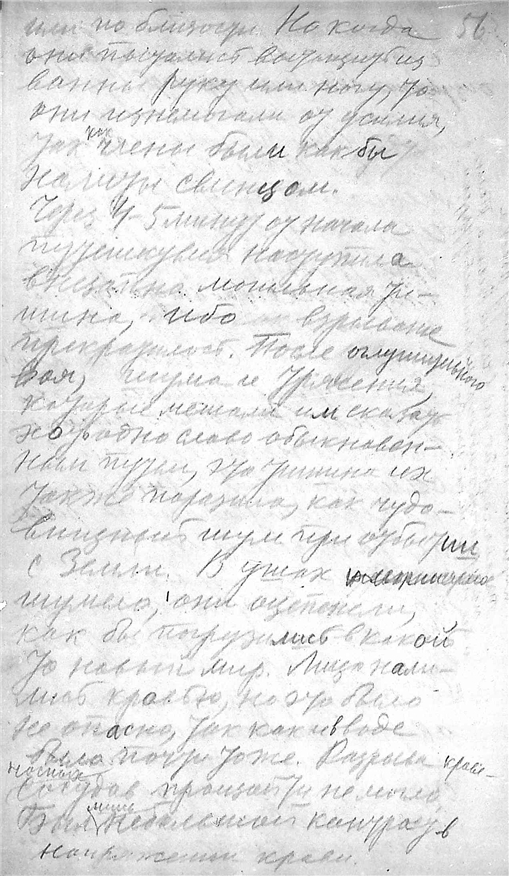 56
или по близости. Но когда
они пытались вытащить из
ванны руку или ногу, то
они изнемогали от усилия,
так как члены были как бы
налиты свинцом.
Через 4-5 минут от начала
путешествия наступила
внезапно могильная ти-
шина, ибо взрывание
прекратилось. После оглушительного
воя, шума и трясения,
которые мешали им сказать
хо одно слово обыкновен-
ным путем, эта тишина их
также поразила, как чудо-
вищный шум при отбытии
с Земли. В ушах
шумело, они оцепенели,
как бы погрузились в какой
то новый мир. Лица нали-
лись кровью, но это было
не опасно, так как и в воде
было почти тоже. Разрыва крове-
носных
сосудов произойти не могло.
Был лишь небольшой контраст в
напряжении крови.